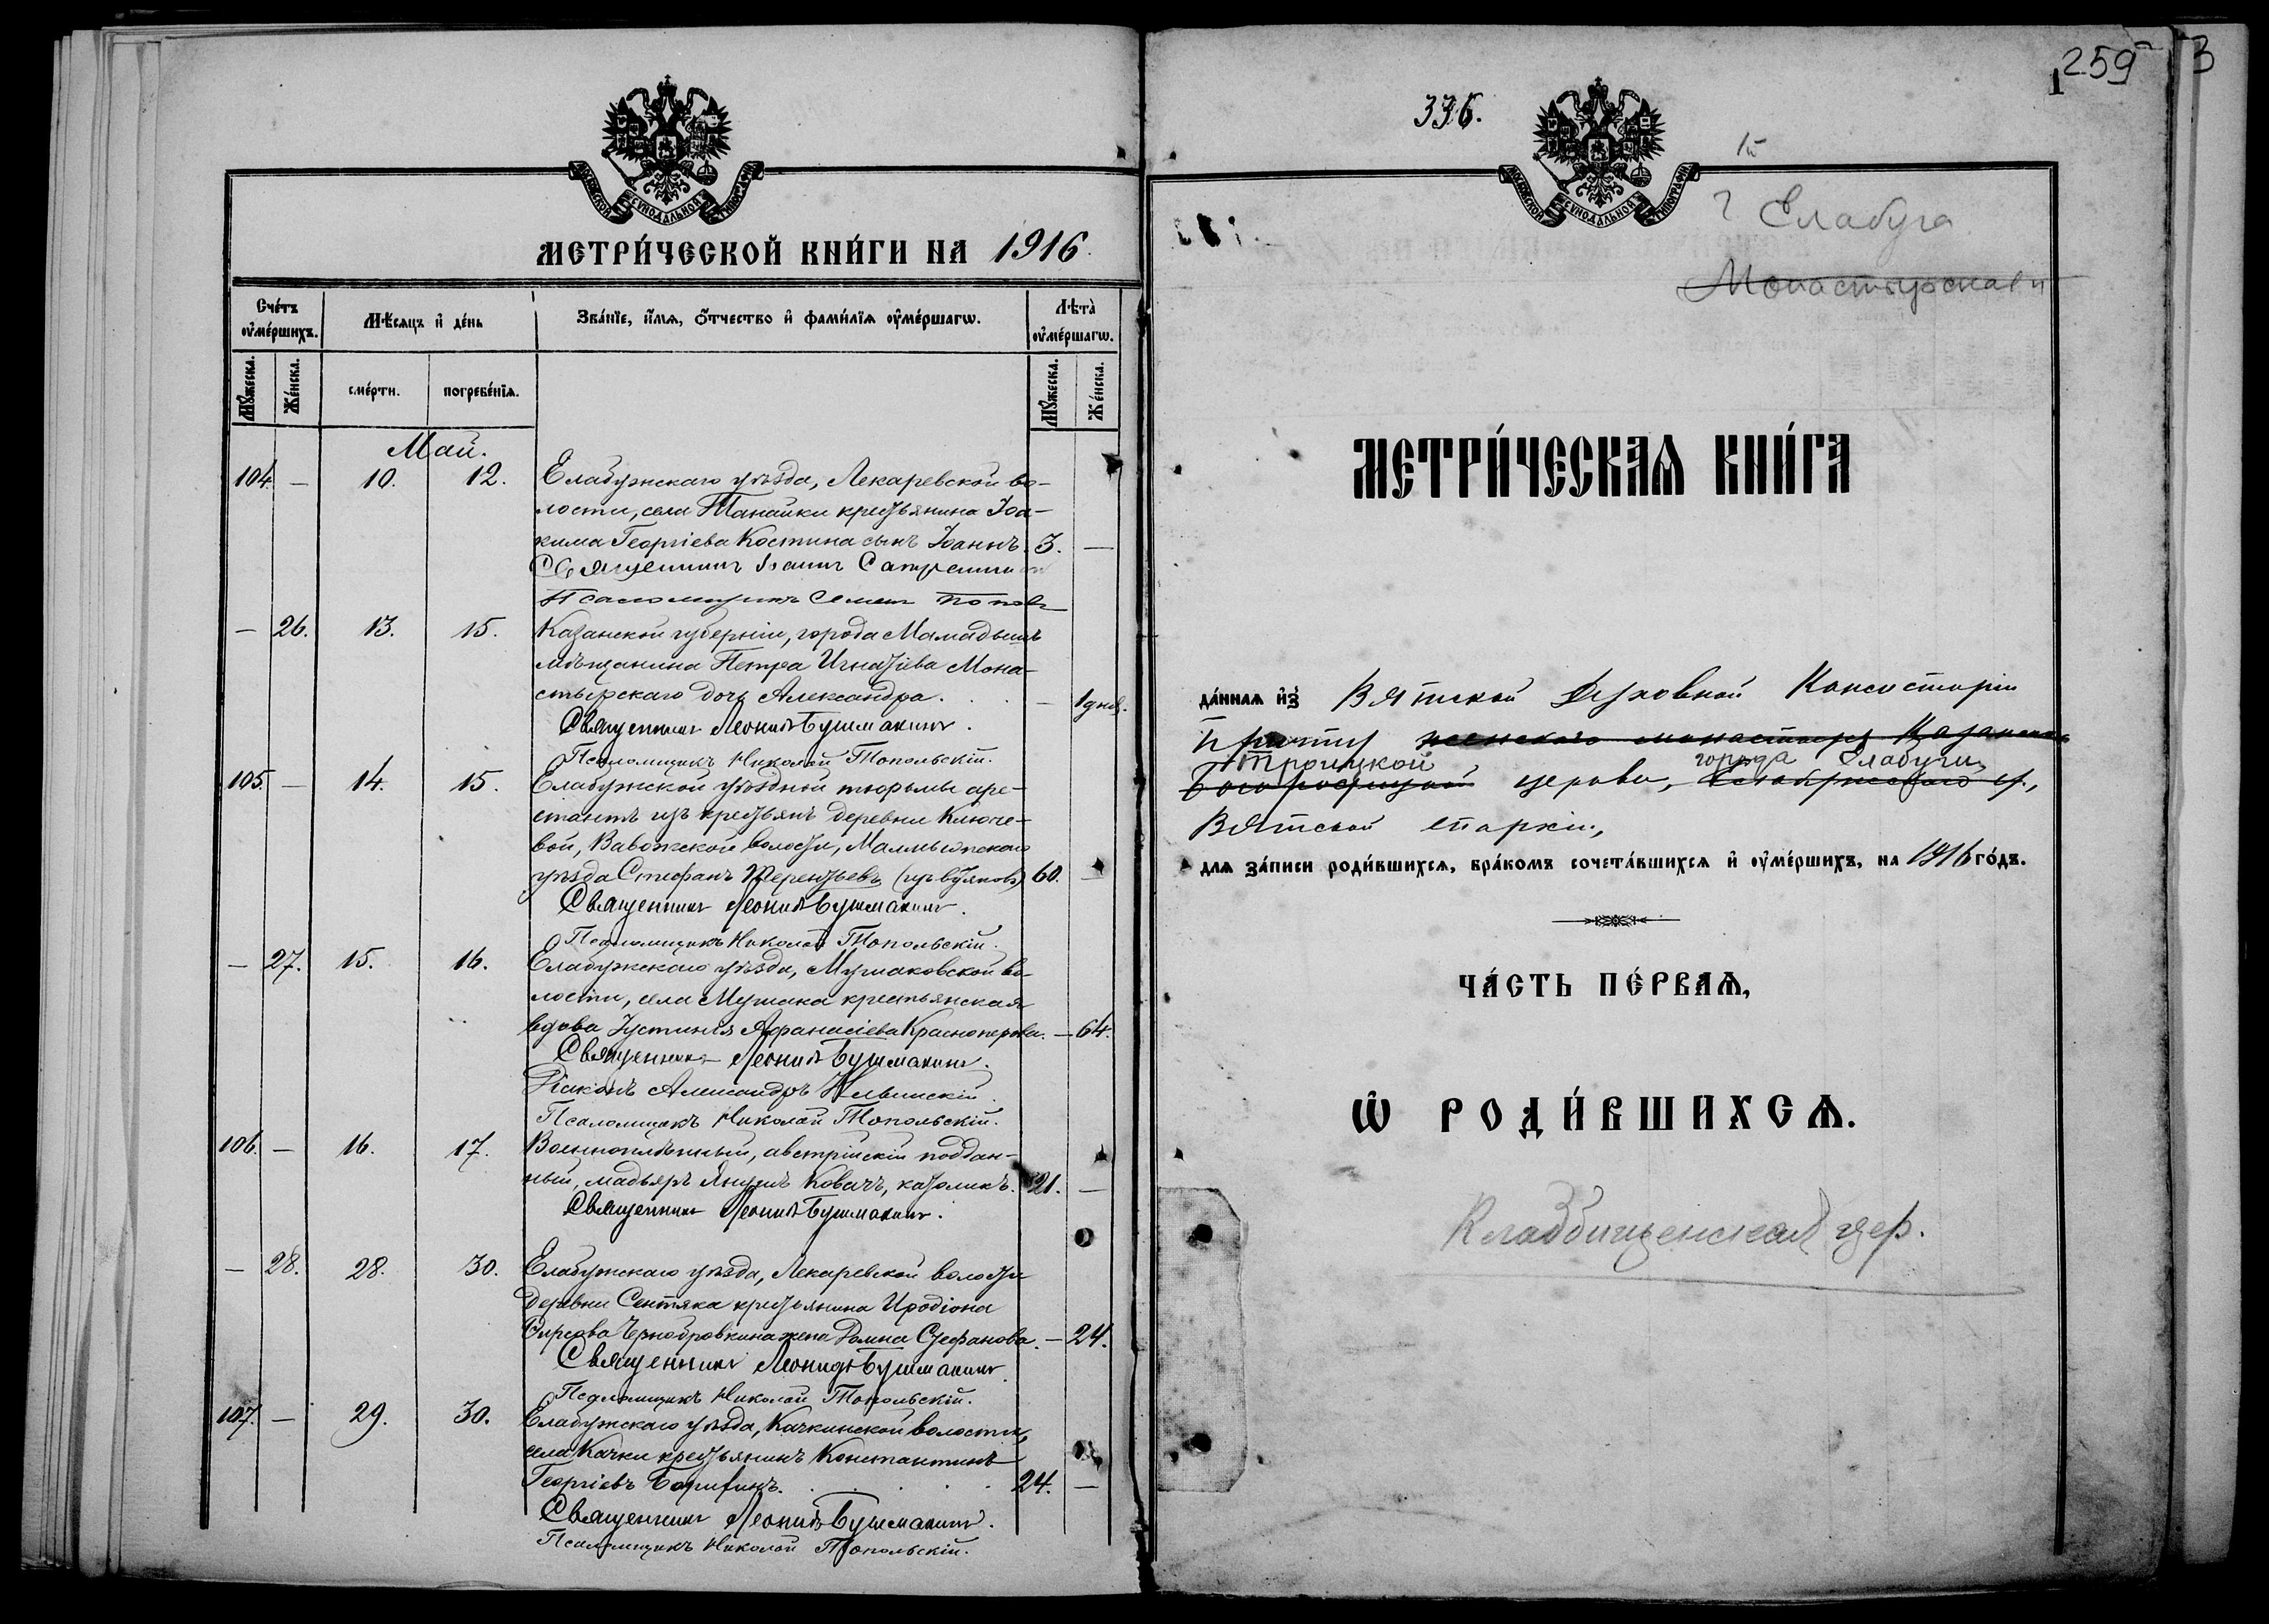 МОСКОВСКОЙ СѴНОДАЛЬНОЙ ТИПОГРАФІИ
МЕТРИ́ЧЕСКОЙ КНИ́ГИ НА 1916.
Сче́тъ оу҆ме́ршихъ.
Мѣ́сяцъ и҆ де́нь
Зва́нїе, и҆́мѧ, ѻ҆́тчество и҆ фами́лїѧ оу҆ме́ршагѡ.
Лѣта̀ оу҆ме́ршагѡ.
Мꙋ́жеска.
Же́нска.
сме́рти.
погребе́нїѧ.
Мꙋ́жеска.
Же́нска.
Май.
104. — 10. 12. Елабужскаго уѣзда, Лекаревской во-
лости, села Танайки крестьянина Іоа-
кима Георгіева Костина сынъ Іоаннъ. 3. —
Священникъ Іоаннъ
Псаломщикъ Семенъ Поповъ
— 26. 13. 15. Казанской губерніи, города Мамадышъ
мѣщанина Петра Игнатіева Мона-
стырскаго дочь Александра. — 1 дня.
Священникъ Леонидъ Бушмакинъ.
Псаломщикъ Николай Топольскій.
105. — 14. 15. Елабужской уѣздной тюрьмы аре-
стантъ изъ крестьянъ деревни Ключе-
вой, Вавожской волости, Малмыжскаго
уѣзда Стефанъ Терентьевъ (изъ вотяковъ) 60. —
Священникъ Леонидъ Бушмакинъ.
Псаломщикъ Николай Топольскій.
— 27. 15. 16. Елабужскаго уѣзда, Мушаковской во-
лости, села Мушака крестьянская
вдова Іустинія Афанасіева Красноперова. — 64.
Священникъ Леонидъ Бушмакинъ.
Діаконъ Александръ
Псаломщикъ Николай Топольскій.
106. — 16. 17. Военноплѣнный, австрійскій поддан-
ный, мадьяръ Янушъ Ковачъ, католикъ. 21. —
Священникъ Леонидъ Бушмакинъ.
— 28. 28. 30. Елабужскаго уѣзда, Лекаревской волости
деревни Сентяка крестьянина Иродіона
Фирсова Чернобровкина жена Домна Стефанова. — 24.
Священникъ Леонидъ Бушмакинъ.
Псаломщикъ Николай Топольскій.
107. — 29. 30. Елабужскаго уѣзда, Качкинской волости,
села Качки крестьянинъ Константинъ
Георгіевъ 24. —
Священникъ Леонидъ Бушмакинъ.
Псаломщикъ Николай Топольскій.
259
3
1
336.
МОСКОВСКОЙ СѴНОДАЛЬНОЙ ТИПОГРАФІИ
г Елабуга
Монастырская
МЕТРИ́ЧЕСКАѦ КНИ́ГА
да́ннаѧ и҆з̾ Вятской Духовной Консисторіи
Причту женскаго монастыря Казанско
Троицкой города Елабуги
Богородицкой церкви, Елабужскаго у.,
Вятской епархіи,
длѧ за́писи роди́вшихсѧ, бра́комъ сочета́вшихсѧ и҆ оу҆ме́ршихъ, на 1916 го́дъ.
ЧА́СТЬ ПЕ́РВАѦ,
Ѽ РОДИ́ВШИХСѦ.
Кладбищенская цер.